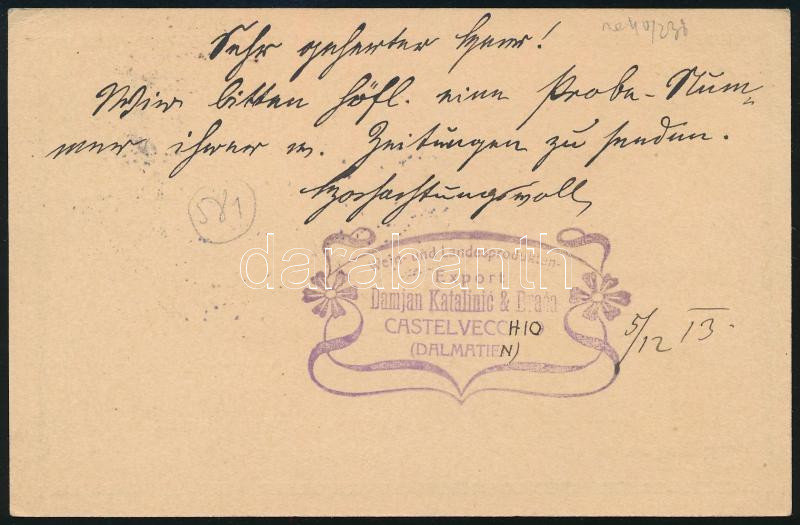 Sehr geehrter Herr!
Wir bitten höfl. eine Probe-Num-
mer ihrer w. Zeitungen zu senden.
Hochachtungsvoll
581
Wein- und Landesprodukten-
Export
Damjan Katalinić & Braća
CASTELVECCHIO
(DALMATIEN)
5/12 13.
darabanth